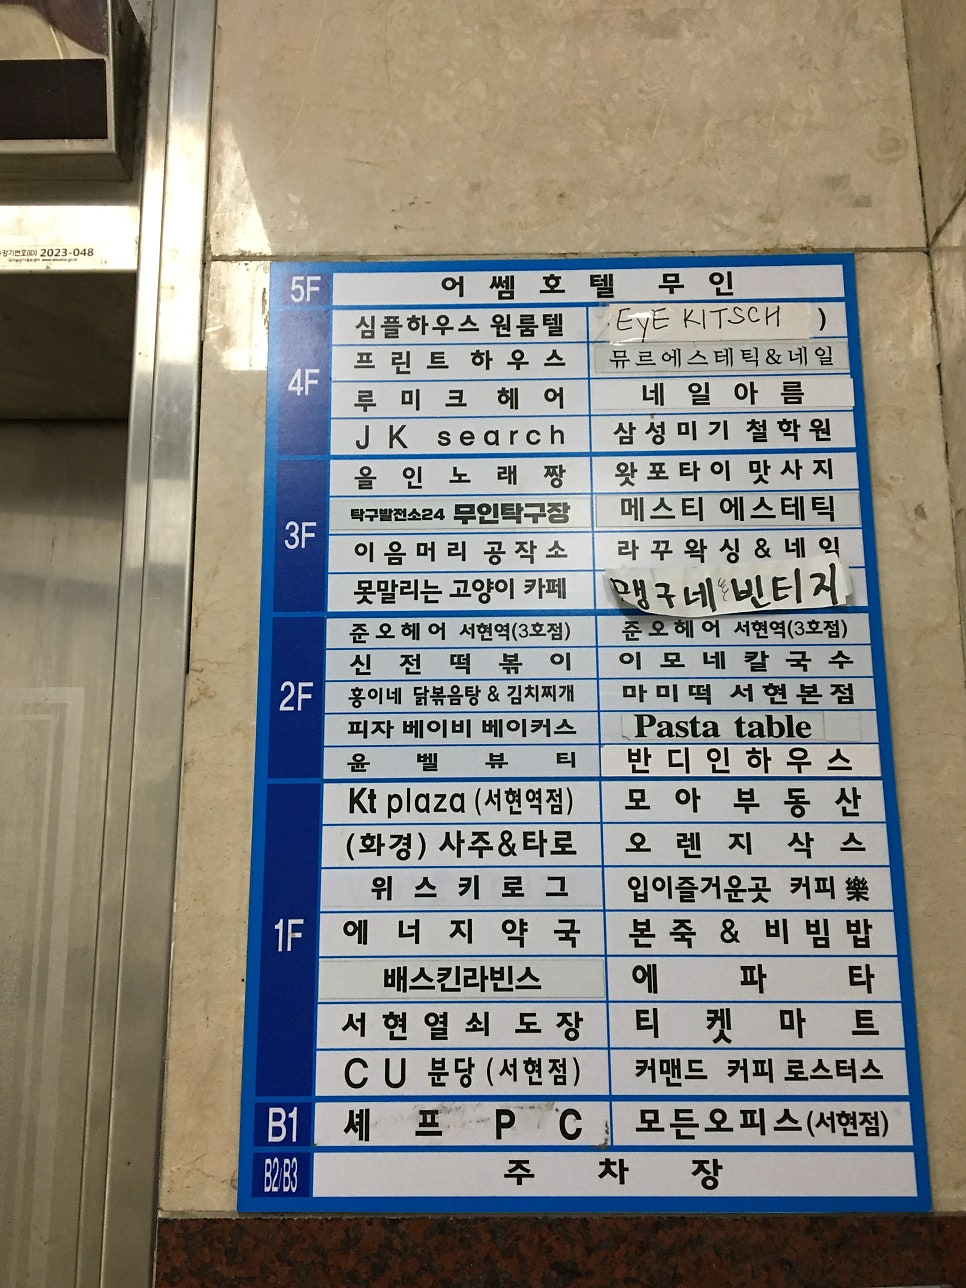 승강기번호(ID) 2023-048
5F 어쎔호텔 무인
4F
심플하우스 원룸텔 EyE KITSCH )
프린트하우스 뮤르에스테틱&네일
루미크헤어 네일아름
JK search 삼성미기 철학원
3F
올인노래짱 왓포타이 맛사지
탁구발전소24 무인탁구장 메스티 에스테틱
이음머리 공작소 라꾸왁싱&네일
못말리는 고양이 카페 맹구네 빈티지
2F
준오헤어 서현역(3호점) 준오헤어 서현역(3호점)
신전떡볶이 이모네칼국수
홍이네 닭볶음탕 & 김치찌개 마미떡 서현본점
피자 베이비 베이커스 Pasta table
윤벨뷰티 반디인하우스
1F
Kt plaza (서현역점) 모아부동산
(화경) 사주&타로 오렌지삭스
위스키로그 입이즐거운곳 커피 樂
에너지약국 본죽&비빔밥
배스킨라빈스 에파타
서현열쇠 도장 티켓마트
CU 분당 (서현점) 커맨드 커피 로스터스
B1 셰프PC 모든오피스(서현점)
B2/B3 주차장